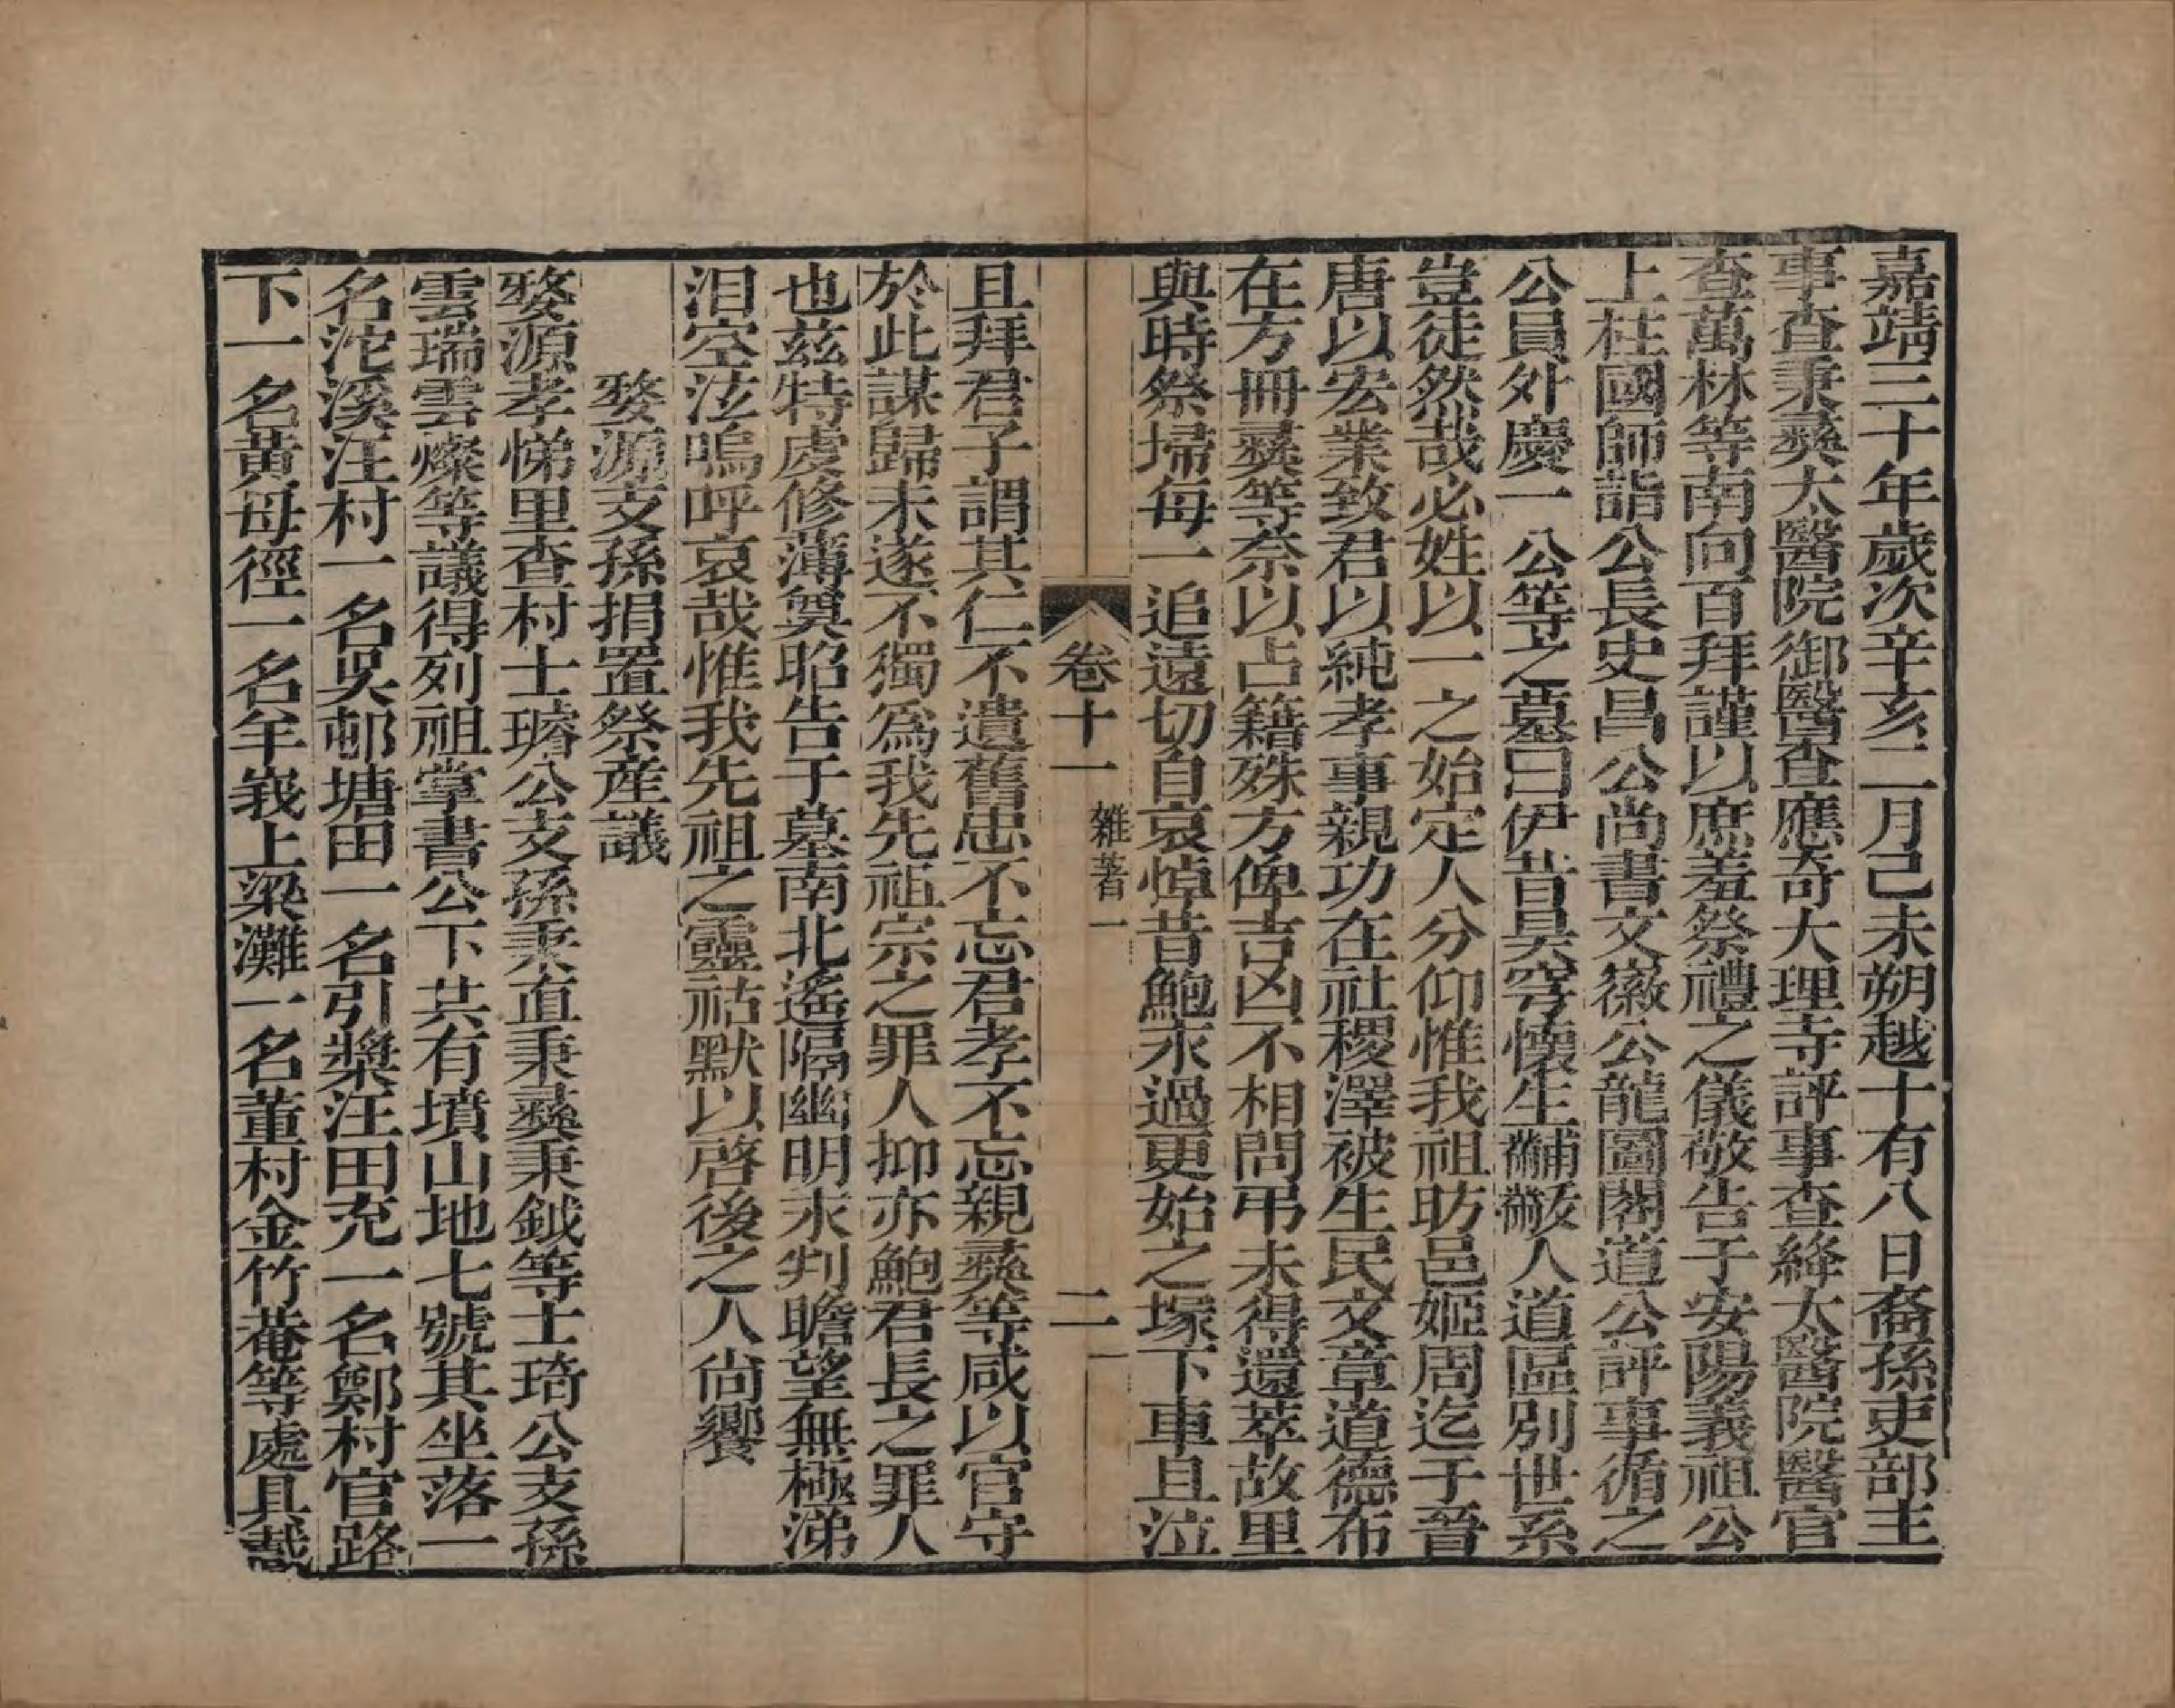 嘉靖三十年歲次辛亥二月己未朔越十有八日裔孫吏部主
事查秉彝太醫院御醫查應奇大理寺評事查絳太醫院醫官
查萬林等南向百拜謹以庶羞祭禮之儀敬告于安陽義祖公
上柱國師詣公長史昌公尚書文徽公龍圖閣道公評事循之
公員外慶一公等之墓曰伊昔昊穹懷生黼黻人道區別世系
豈徒然哉必姓以一之始定人分仰惟我祖昉邑姬周迄于晉
唐以宏業致君以純孝事親功在社稷澤被生民文章道德布
在方冊彝等奈以占籍殊方俾吉凶不相問弔未得還萃故里
與時祭埽每一追遠切自哀悼昔鮑永過更始之塚下車且泣
卷十一 雜著一 二
且拜君子謂其仁不遺舊忠不忘君孝不忘親彝等咸以官守
於此謀歸未遂不獨為我先祖宗之罪人抑亦鮑君長之罪人
也茲特虔修薄奠昭告于墓南北遙隔幽明永判瞻望無極涕
泪空泫嗚呼哀哉惟我先祖之靈祜默以啓後之人尙饗
婺源支孫捐置祭産議
婺源孝悌里查村士璿公支孫秉直秉彝秉鉞等士琦公支孫
雲瑞雲燦等議得列祖掌書公下共有墳山地七號其坐落一
名沱溪汪村一名吳邨塘田一名引槳汪田充一名鄭村官路
下一名黄母徑一名羊峩上梁灘一名董村金竹菴等處具載